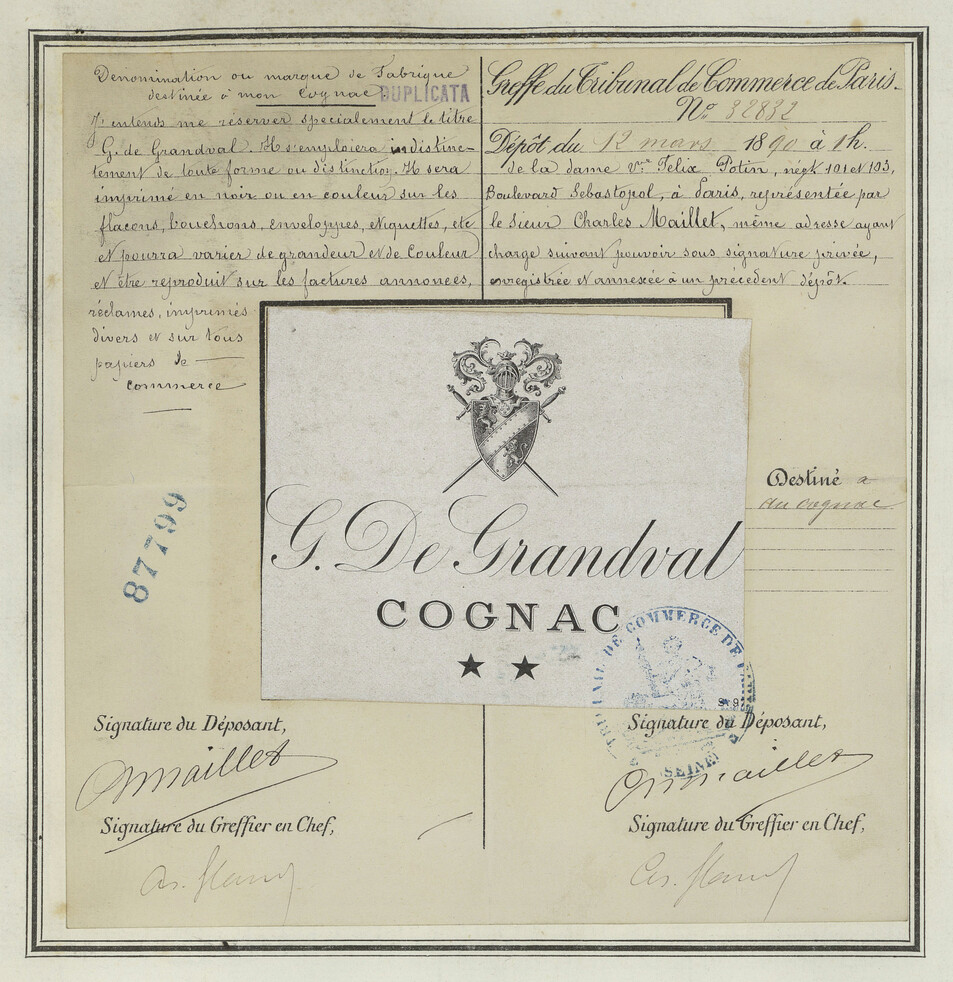 Denomination ou marque de Fabrique
destinée à mon Cognac
DUPLICATA
J'entends me réserver specialement le titre
G. de Grandval. Il s'emploiera indistinc-
tement de toute forme ou distinction. Il sera
imprimé en noir ou en couleur sur les
flacons, bouchons, enveloppes, etiquettes, etc
et pourra varier de grandeur et de Couleur
et être reproduit sur les factures annonces,
réclames, imprimés
divers et sur tous
papiers de
commerce
Greffe du Tribunal de Commerce de Paris.
No 32832
Dépôt du 12 mars 1890 à 1h.
de la dame Vve Félix Potin, négte 101 et 103,
Boulevard Sebastopol, à Paris, représentée par
le sieur Charles Maillet, même adresse ayant
charge suivant pouvoir sous signature privée,
enregistrée et annexée à un précédent dépôt.
G. De Grandval
COGNAC
★ ★
Destiné a
du cognac
87799
TRIBUNAL DE COMMERCE DE LA
SEINE
Signature du Déposant,
Chmaillet
Signature du Greffier en Chef,
Signature du Déposant,
Chmaillet
Signature du Greffier en Chef,